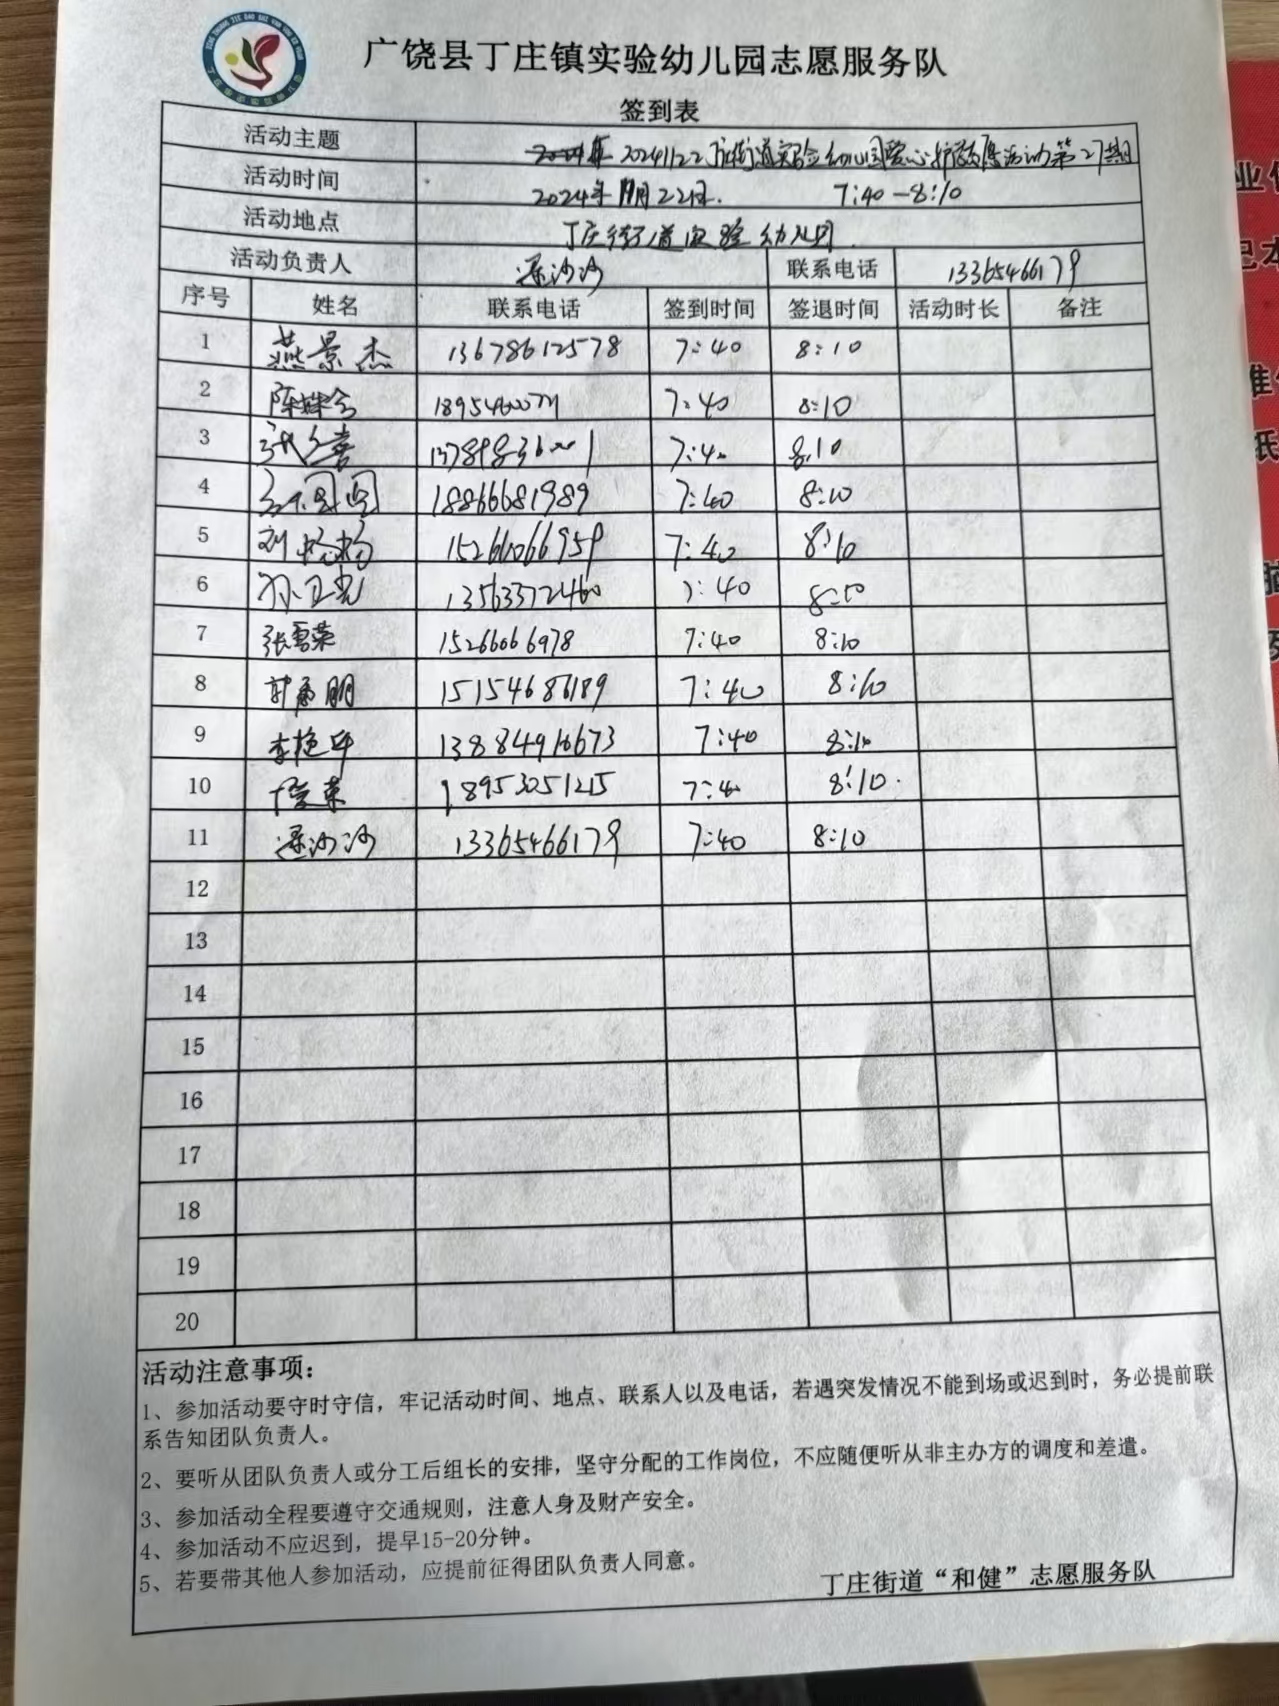 广饶县丁庄镇实验幼儿园志愿服务队
签到表
活动主题 20241122丁庄街道实验幼儿园爱心护学志愿活动第27期
活动时间 2024年11月22日. 7:40-8:10
活动地点 丁庄街道实验幼儿园
活动负责人 梁沙沙 联系电话 13365466179
序号 姓名 联系电话 签到时间 签退时间 活动时长 备注
1 燕景杰 13678612578 7:40 8:10
2 7:40 8:10
3 7:40 8:10
4 18866681989 7:40 8:10
5 刘 15266066959 7:40 8:10
6 13563372460 7:40
7 张雪荣 15266066978 7:40 8:10
8 明 15154686189 7:40 8:10
9 李艳 13884916673 7:40 8:10
10 荣 18953051215 7:40 8:10
11 梁沙沙 13365466179 7:40 8:10
12
13
14
15
16
17
18
19
20
活动注意事项：
1、参加活动要守时守信，牢记活动时间、地点、联系人以及电话，若遇突发情况不能到场或迟到时，务必提前联
系告知团队负责人。
2、要听从团队负责人或分工后组长的安排，坚守分配的工作岗位，不应随便听从非主办方的调度和差遣。
3、参加活动全程要遵守交通规则，注意人身及财产安全。
4、参加活动不应迟到，提早15-20分钟。
5、若要带其他人参加活动，应提前征得团队负责人同意。
丁庄街道“和健”志愿服务队